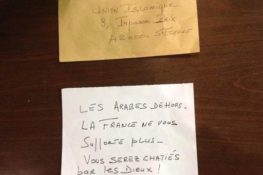 UNION ISLAMIQUE
8, IMPASSE
LES ARABES DEHORS.
LA FRANCE NE VOUS
SUPPORTE PLUS_
VOUS SEREZ CHATIÉS
PAR LES DIEUX !